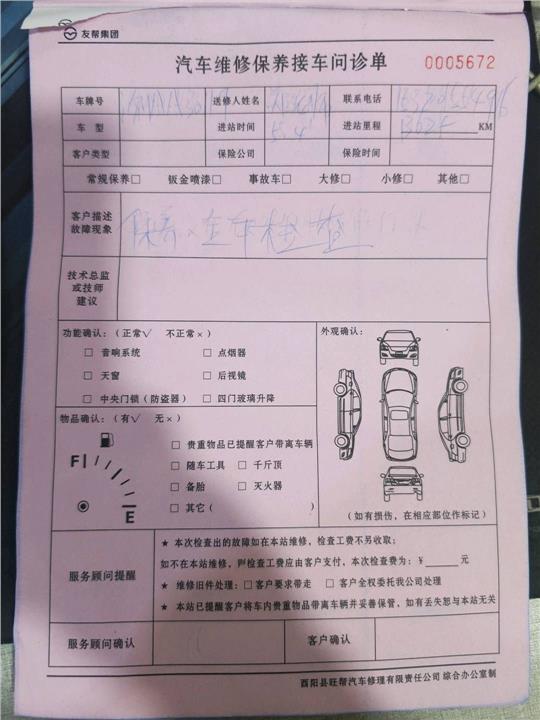 友帮集团
汽车维修保养接车问诊单 0005672
车牌号 送修人姓名 联系电话
车 型 进站时间 5.4 进站里程 KM
客户类型 保险公司 保险时间
常规保养□ 钣金喷漆□ 事故车□ 大修□ 小修□ 其他□
客户描述
故障现象
保养 全车检查
技术总监
或技师
建议
功能确认：（正常√ 不正常×） 外观确认：
□ 音响系统 □ 点烟器
□ 天窗 □ 后视镜
□ 中央门锁（防盗器） □ 四门玻璃升降
物品确认：（有√ 无×）
□ 贵重物品已提醒客户带离车辆
□ 随车工具 □ 千斤顶
□ 备胎 □ 灭火器
□ 其它（ ）
F
E
（如有损伤，在相应部位作标记）
服务顾问提醒
★ 本次检查出的故障如在本站维修，检查工费不另收取；
如不在本站维修，则检查工费应由客户支付，本次检查费为：￥______元
★ 维修旧件处理：□ 客户要求带走 □ 客户全权委托我公司处理
★ 本站已提醒客户将车内贵重物品带离车辆并妥善保管，如有丢失恕与本站无关
服务顾问确认 客户确认
酉阳县旺帮汽车修理有限责任公司 综合办公室制